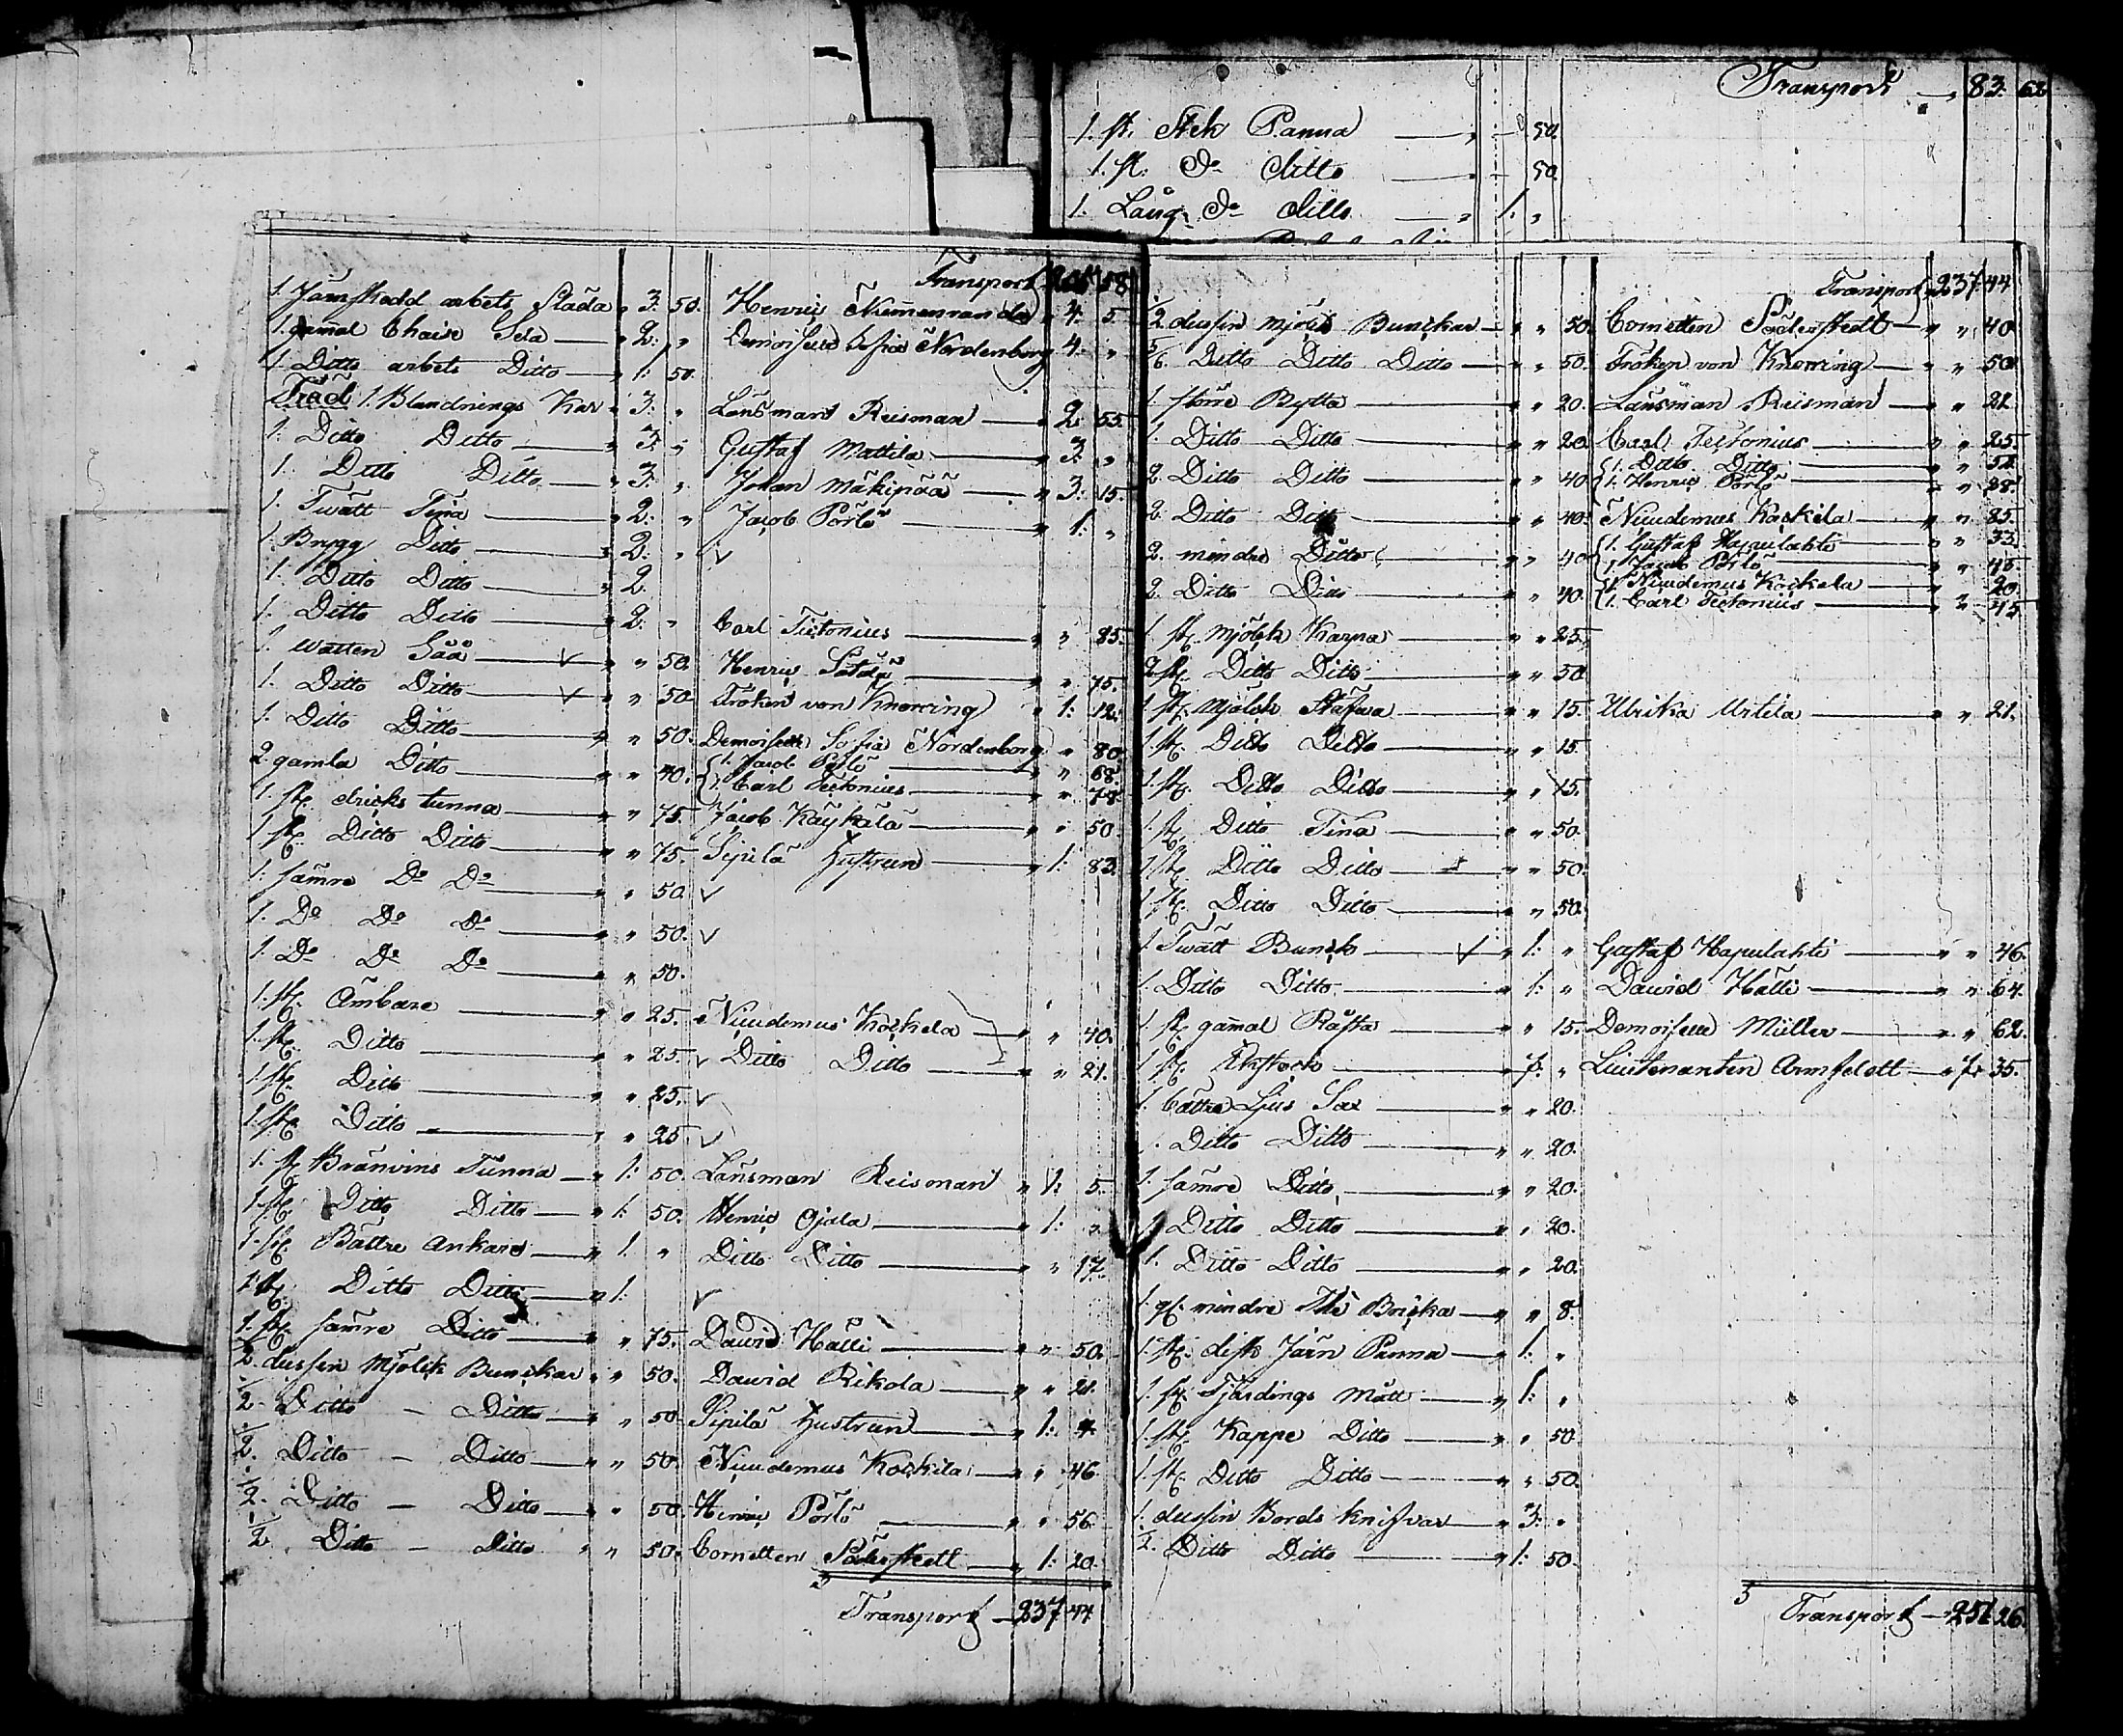 Transport — 83. 62
1. st. Stek Panna — " — 50.
1. st. Do ditto — " — 50.
1. Lång Do ditto — " 1: "
Transport 58.
1. Järnskodd arbets Släda " 3: 50. Henric 4: 5.
1. gamal Chaise Sela — " 2: " Demoiselle Sofia Nordenborg 4: "
1. Ditto arbets Ditto — " 1: 50.
Träd 1. Blandnings Kar " 3: " Länsman Reisman — " 2: 55.
1. Ditto Ditto — " 3: " Gustaf Mattila — " 3: "
1. Ditto Ditto — " 3: " Johan Mäkipää — " 3: 15.
1. Twätt Tina — " 2: " Jacob Pörlö — " 1: "
1. Brygg Ditto — " 2: " v
1. Ditto Ditto — " 2.
1. Ditto Ditto — " 2: " Carl Tectonius — " " 85.
1. watten Såå — v " " 50. Henric — " " 75.
1. Ditto Ditto — v " " 50. Fröken von Knorring " 1: 12.
1. Ditto Ditto — " " 50. Demoiselle Sofia Nordenborg " 80.
2. gamla Ditto — " " 40. {1. Jacob Pörlö — " " 68.
{1. Carl Tectonius — " " 78.
1. st. dricks tunna — " " 75. Jacob Käykälä — " " 50.
1. st. Ditto Ditto — " " 75. Sipilä Hustrun — " 1: 83.
1. sämre Do Do — " " 50. v
1. Do Do Do — " " 50. v
1. Do Do Do — " " 50.
1. st. Ämbare — " " 25. Nicudemus Kockela — " " 40.
1. st. Ditto — " " 25. v Ditto Ditto — " " 21.
1. st. Ditto — " " 25. v
1. st. Ditto — " " 25. v
1. st. Bränvins Tunna — " 1: 50. Länsman Reisman " 1: 5.
1. st. Ditto Ditto — " 1: 50. Henric Ojala — " 1: "
1. st. Bättre Ankare — " 1. " Ditto Ditto — " " 17.
1. st. Ditto Ditto — " 1: v
1. st. sämre Ditto — " " 75. David Hälli — " " 50.
1/2. dussin Mjölk Bunckar " " 50. David Rikola — " " 21.
1/2. Ditto — Ditto — " " 50. Sipilä Hustrun — " 1: 4.
1/2. Ditto — Ditto — " " 50. Nicudemus Kockila — " " 46.
1/2. Ditto — Ditto — " " 50. Henric Pörlö — " " 56.
1/2. Ditto — Ditto " " 50. Cornetten Söderstedt — " 1: 20.
Transport — 237 44
Transport 237. 44
1/2 dussin mjölk Bunckar — " " 50. Cornetten Söderstedt — " " 40.
5/6. Ditto Ditto Ditto — " " 50. Fröken von Knorring — " " 50.
1. större Bytta — " " 20. Länsman Reisman — " " 21.
1. Ditto Ditto — " " 20. Carl Tectonius — " " 25.
2. Ditto Ditto — " " 40. {1. Ditto Ditto — " " 51.
{1. Henric Pörlö — " " 28.
2. Ditto Ditto — " " 40. Nicudemus Kockila — " " 85.
2. mindre Ditto — " " 40. {1. Gustaf Hapulahti — " " 33.
{1. Jacob Pörlö — " " 45.
2. Ditto Ditto — " " 40. {1. Nicudemus Kockela — " " 20.
{1. Carl Tectonius — " " 45
1. st. mjölk Karna — " " 25.
2. st. Ditto Ditto — " " 50.
1. st. Mjölck Stäfwa — " " 15. Ulrika Uitila — " " 21.
1. st. Ditto Ditto — " " 15.
1. st. Ditto Ditto — " " 15.
1. st. Ditto Tina — " " 50.
1. st. Ditto Ditto — " " 50.
1. st. Ditto Ditto — " " 50.
1. Twätt Bunck — v " 1: " Gustaf Hapulahti — " " 46.
1. Ditto Ditto — " 1: " David Hälli — " " 64.
1. st. gammal — " " 15. Demoiselle Müller — " " 62.
1. st. — " 7. " Lieutenanten Armfeldt — " 7: 35.
1. bättre Ljus Sax — " " 20.
1. Ditto Ditto — " " 20.
1. sämre Ditto — " " 20.
1. Ditto Ditto — " " 20.
1. Ditto Ditto — " " 20.
1. st. mindre The Bricka — " " 8.
1. st. disk Järn Panna — " 1: "
1. st. Fjärdings Mått — " 1: "
1. st. Kappe Ditto — " " 50.
1. st. Ditto Ditto — " " 50.
1. dussin Bords knifvar — " 3: "
1/2. Ditto Ditto — " 1: 50.
Transport — 251 26.